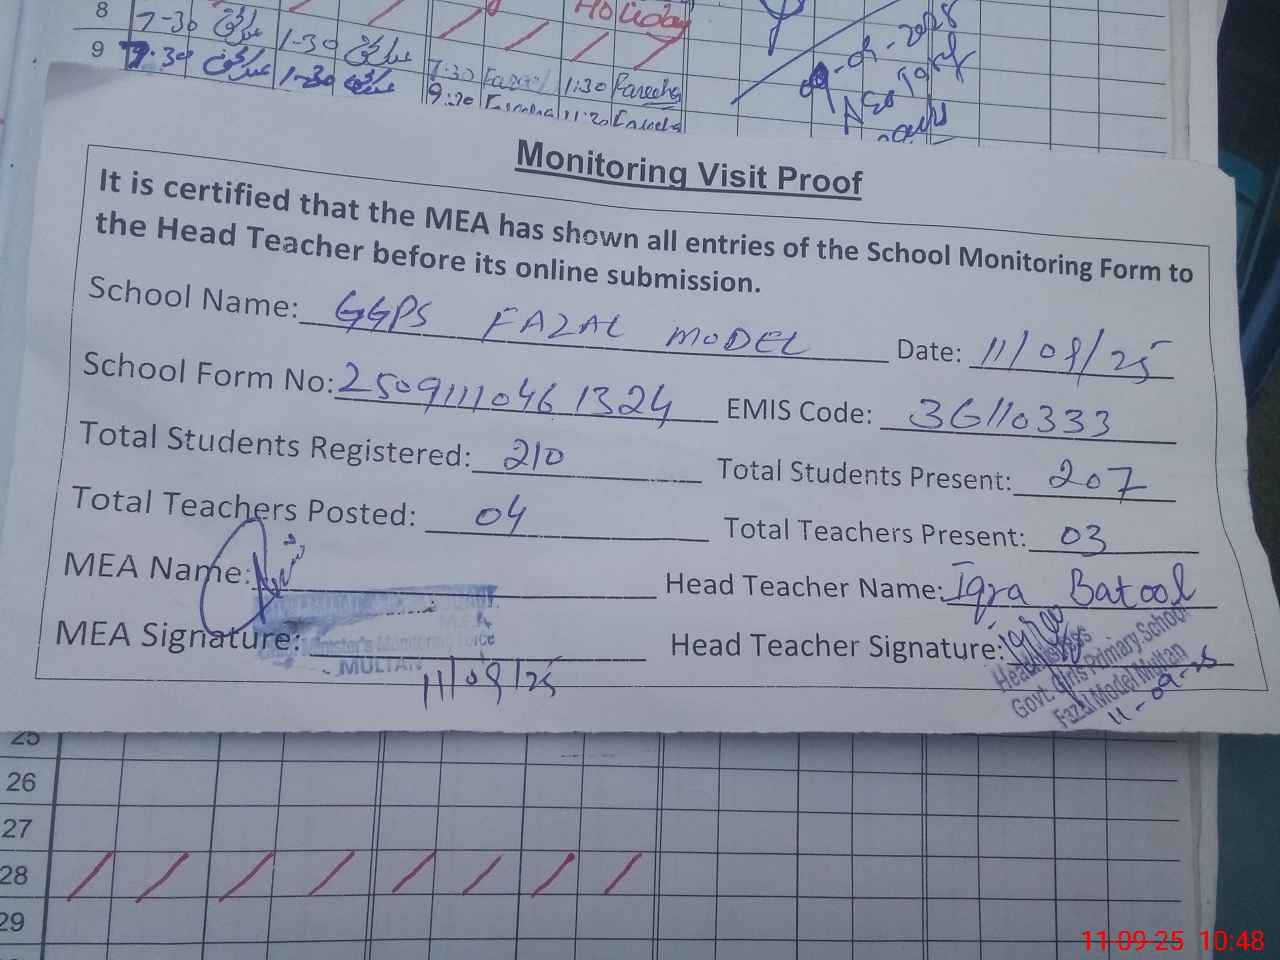 Holiday
8 7-30 1-30
9 7.30 1-30 7:30 1:30 Fareeha
9:20 11:20 Fareeha
Monitoring Visit Proof
It is certified that the MEA has shown all entries of the School Monitoring Form to
the Head Teacher before its online submission.
School Name: GGPS FAZAL MODEL Date: 11/09/25
School Form No: 2509111046 1324 EMIS Code: 36110333
Total Students Registered: 210 Total Students Present: 207
Total Teachers Posted: 04 Total Teachers Present: 03
MEA Name: Head Teacher Name: Iqra Batool
MEA Signature: Head Teacher Signature: Iqra
M.E.A
Chief Minister's Monitoring Force
MULTAN
11/09/25
Headmistress
Govt. Girls Primary School
Fazal Model Multan
11-09-25
25
26
27
28
29
11-09-25 10:48